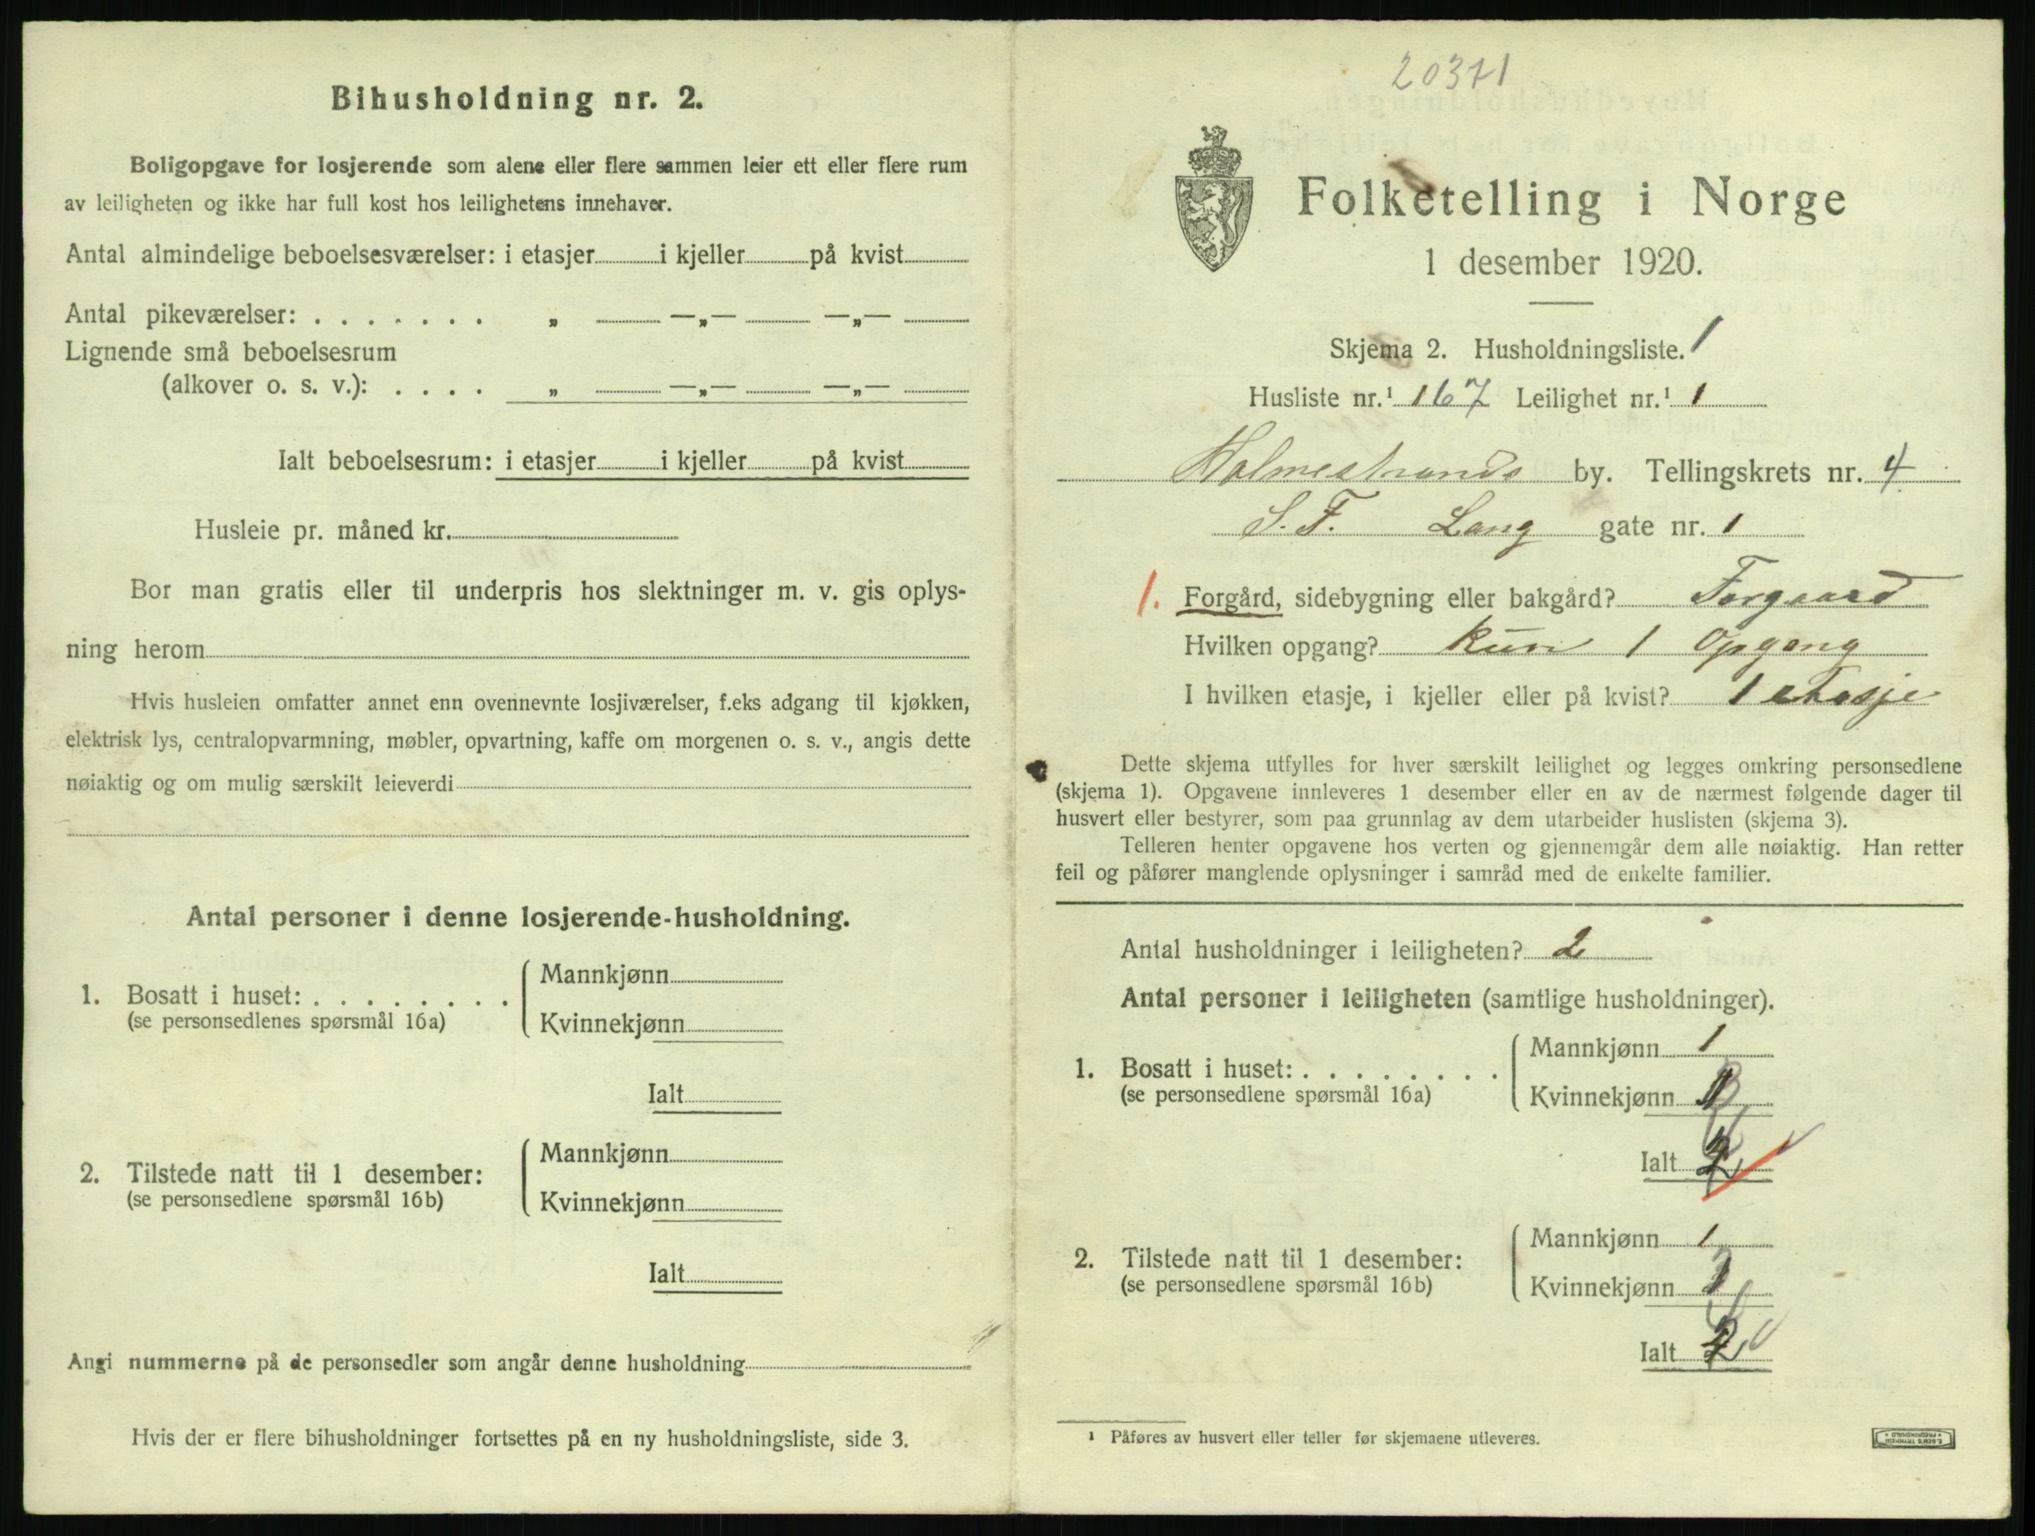 Bihusholdning nr. 2.
Boligopgave for losjerende som alene eller flere sammen leier ett eller flere rum
av leiligheten og ikke har full kost hos leilighetens innehaver.
Antal almindelige beboelsesværelser: i etasjer i kjeller på kvist
Antal pikeværelser: . . . . . . . „ —„— —„—
Lignende små beboelsesrum
(alkover o. s. v.): . . . . „ —„— —„—
Ialt beboelsesrum: i etasjer i kjeller på kvist
Husleie pr. måned kr.
Bor man gratis eller til underpris hos slektninger m. v. gis oplys-
ning herom
Hvis husleien omfatter annet enn ovennevnte losjiværelser, f.eks adgang til kjøkken,
elektrisk lys, centralopvarmning, møbler, opvartning, kaffe om morgenen o. s. v., angis dette
nøiaktig og om mulig særskilt leieverdi
Antal personer i denne losjerende-husholdning.
1. Bosatt i huset: . . . . . . . .
(se personsedlenes spørsmål 16a)
Mannkjønn
Kvinnekjønn
Ialt
2. Tilstede natt til 1 desember:
(se personsedlene spørsmål 16b)
Mannkjønn
Kvinnekjønn
Ialt
Angi nummerne på de personsedler som angår denne husholdning
Hvis der er flere bihusholdninger fortsettes på en ny husholdningsliste, side 3.
20371
Folketelling i Norge
1 desember 1920.
Skjema 2. Husholdningsliste. 1
Husliste nr.¹ 167 Leilighet nr.¹ 1
Holmestrands by. Tellingskrets nr. 4
S. F. Lang gate nr. 1
1. Forgård, sidebygning eller bakgård? Forgaard
Hvilken opgang? kun 1 opgang
I hvilken etasje, i kjeller eller på kvist? 1 etasje
Dette skjema utfylles for hver særskilt leilighet og legges omkring personsedlene
(skjema 1). Opgavene innleveres 1 desember eller en av de nærmest følgende dager til
husvert eller bestyrer, som paa grunnlag av dem utarbeider huslisten (skjema 3).
Telleren henter opgavene hos verten og gjennemgår dem alle nøiaktig. Han retter
feil og påfører manglende oplysninger i samråd med de enkelte familier.
Antal husholdninger i leiligheten? 2
Antal personer i leiligheten (samtlige husholdninger).
1. Bosatt i huset: . . . . . . . .
(se personsedlene spørsmål 16a)
Mannkjønn 1
Kvinnekjønn
Ialt
2. Tilstede natt til 1 desember:
(se personsedlene spørsmål 16b)
Mannkjønn 1
Kvinnekjønn
Ialt
¹ Påføres av husvert eller teller før skjemaene utleveres.